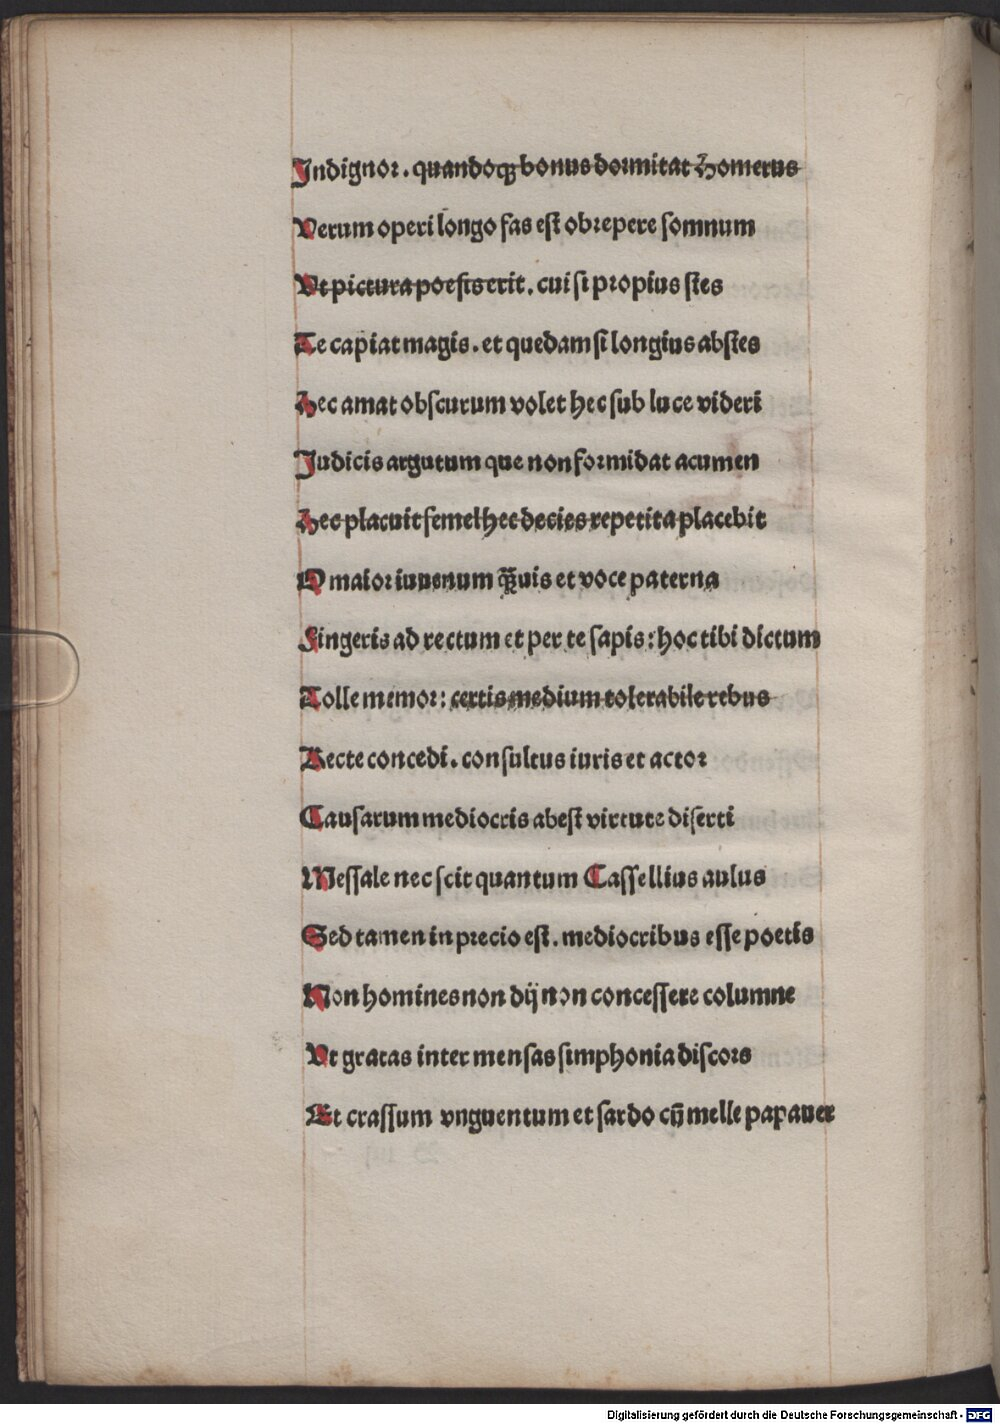 Indignor. quandoqꝫ bonus dormitat Homerus
Verum operi longo fas est obrepere somnum
Vt pictura poesis erit. cui si propius stes
Te capiat magis. et quedam si longius abstes
Hec amat obscurum volet hec sub luce videri
Judicis argutum que non formidat acumen
Hec placuit semel hec decies repetita placebit
O maior iuuenum qͣꝫuis et voce paterna
Fingeris ad rectum et per te sapis: hoc tibi dictum
Tolle memor: certis medium tolerabile rebus
Recte concedi. consultus iuris et actor
Causarum mediocris abest virtute diserti
Messale nec scit quantum Cassellius aulus
Sed tamen in precio est. mediocribus esse poetis
Non homines non dij non concessere columne
Vt gratas inter mensas simphonia discors
Et crassum vnguentum et sardo cū melle papauer
Digitalisierung gefördert durch die Deutsche Forschungsgemeinschaft - DFG